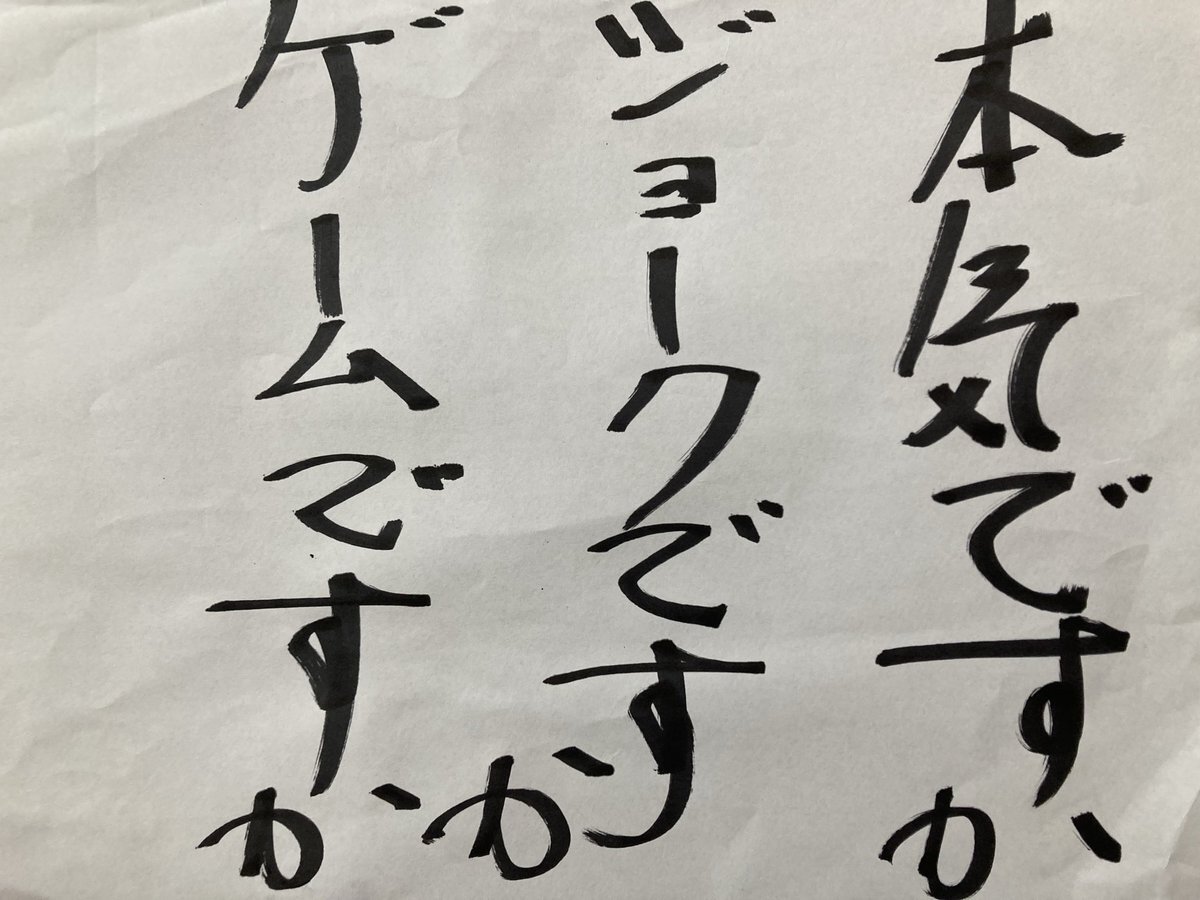 本気ですか
ジョークですか
ゲームですか